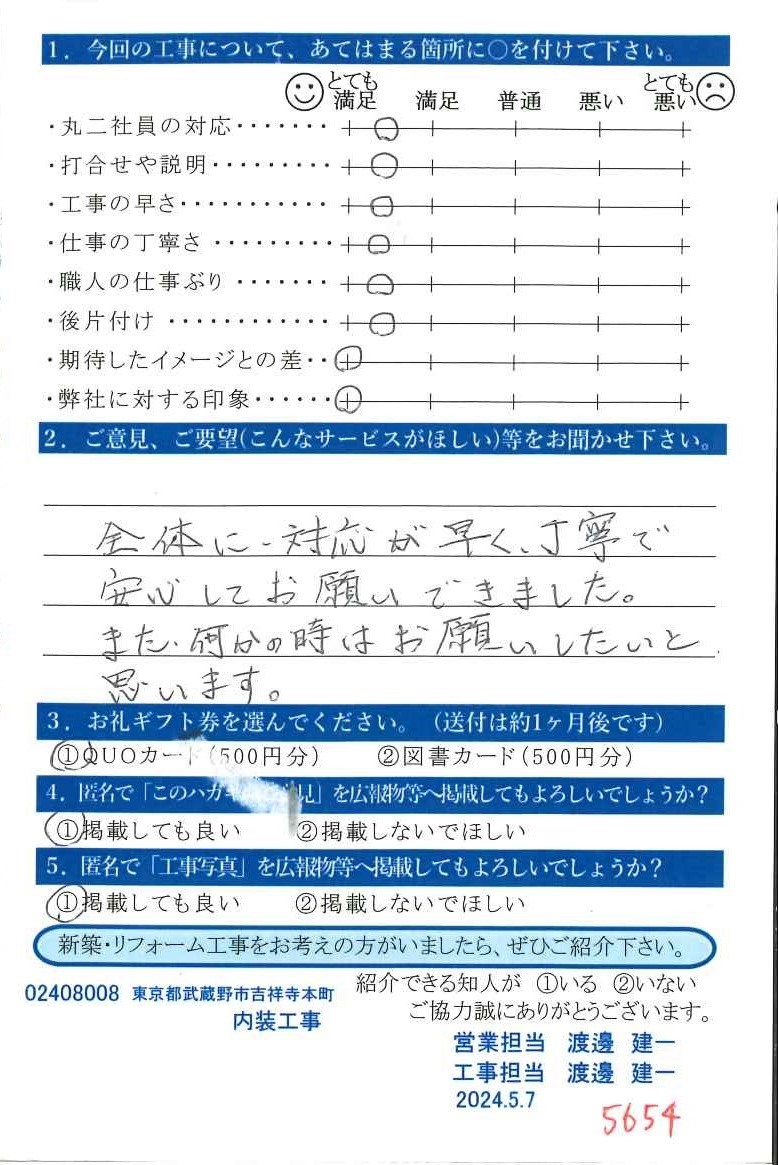 1．今回の工事について、あてはまる箇所に○を付けて下さい。
とても満足 満足 普通 悪い とても悪い
・丸二社員の対応・・・・・・・
・打合せや説明・・・・・・・・・
・工事の早さ・・・・・・・・・・・
・仕事の丁寧さ・・・・・・・・・
・職人の仕事ぶり・・・・・・・
・後片付け・・・・・・・・・・・・
・期待したイメージとの差・・
・弊社に対する印象・・・・・・
2．ご意見、ご要望(こんなサービスがほしい)等をお聞かせ下さい。
全体に、対応が早く、丁寧で
安心してお願いできました。
また、何かの時はお願いしたいと
思います。
3．お礼ギフト券を選んでください。（送付は約1ヶ月後です）
①QUOカード(500円分) ②図書カード(500円分)
4．匿名で「このハガキ 見」を広報物等へ掲載してもよろしいでしょうか？
①掲載しても良い ②掲載しないでほしい
5．匿名で「工事写真」を広報物等へ掲載してもよろしいでしょうか？
①掲載しても良い ②掲載しないでほしい
新築・リフォーム工事をお考えの方がいましたら、ぜひご紹介下さい。
紹介できる知人が ①いる ②いない
02408008 東京都武蔵野市吉祥寺本町
ご協力誠にありがとうございます。
内装工事
営業担当 渡邊 建一
工事担当 渡邊 建一
2024.5.7
5654